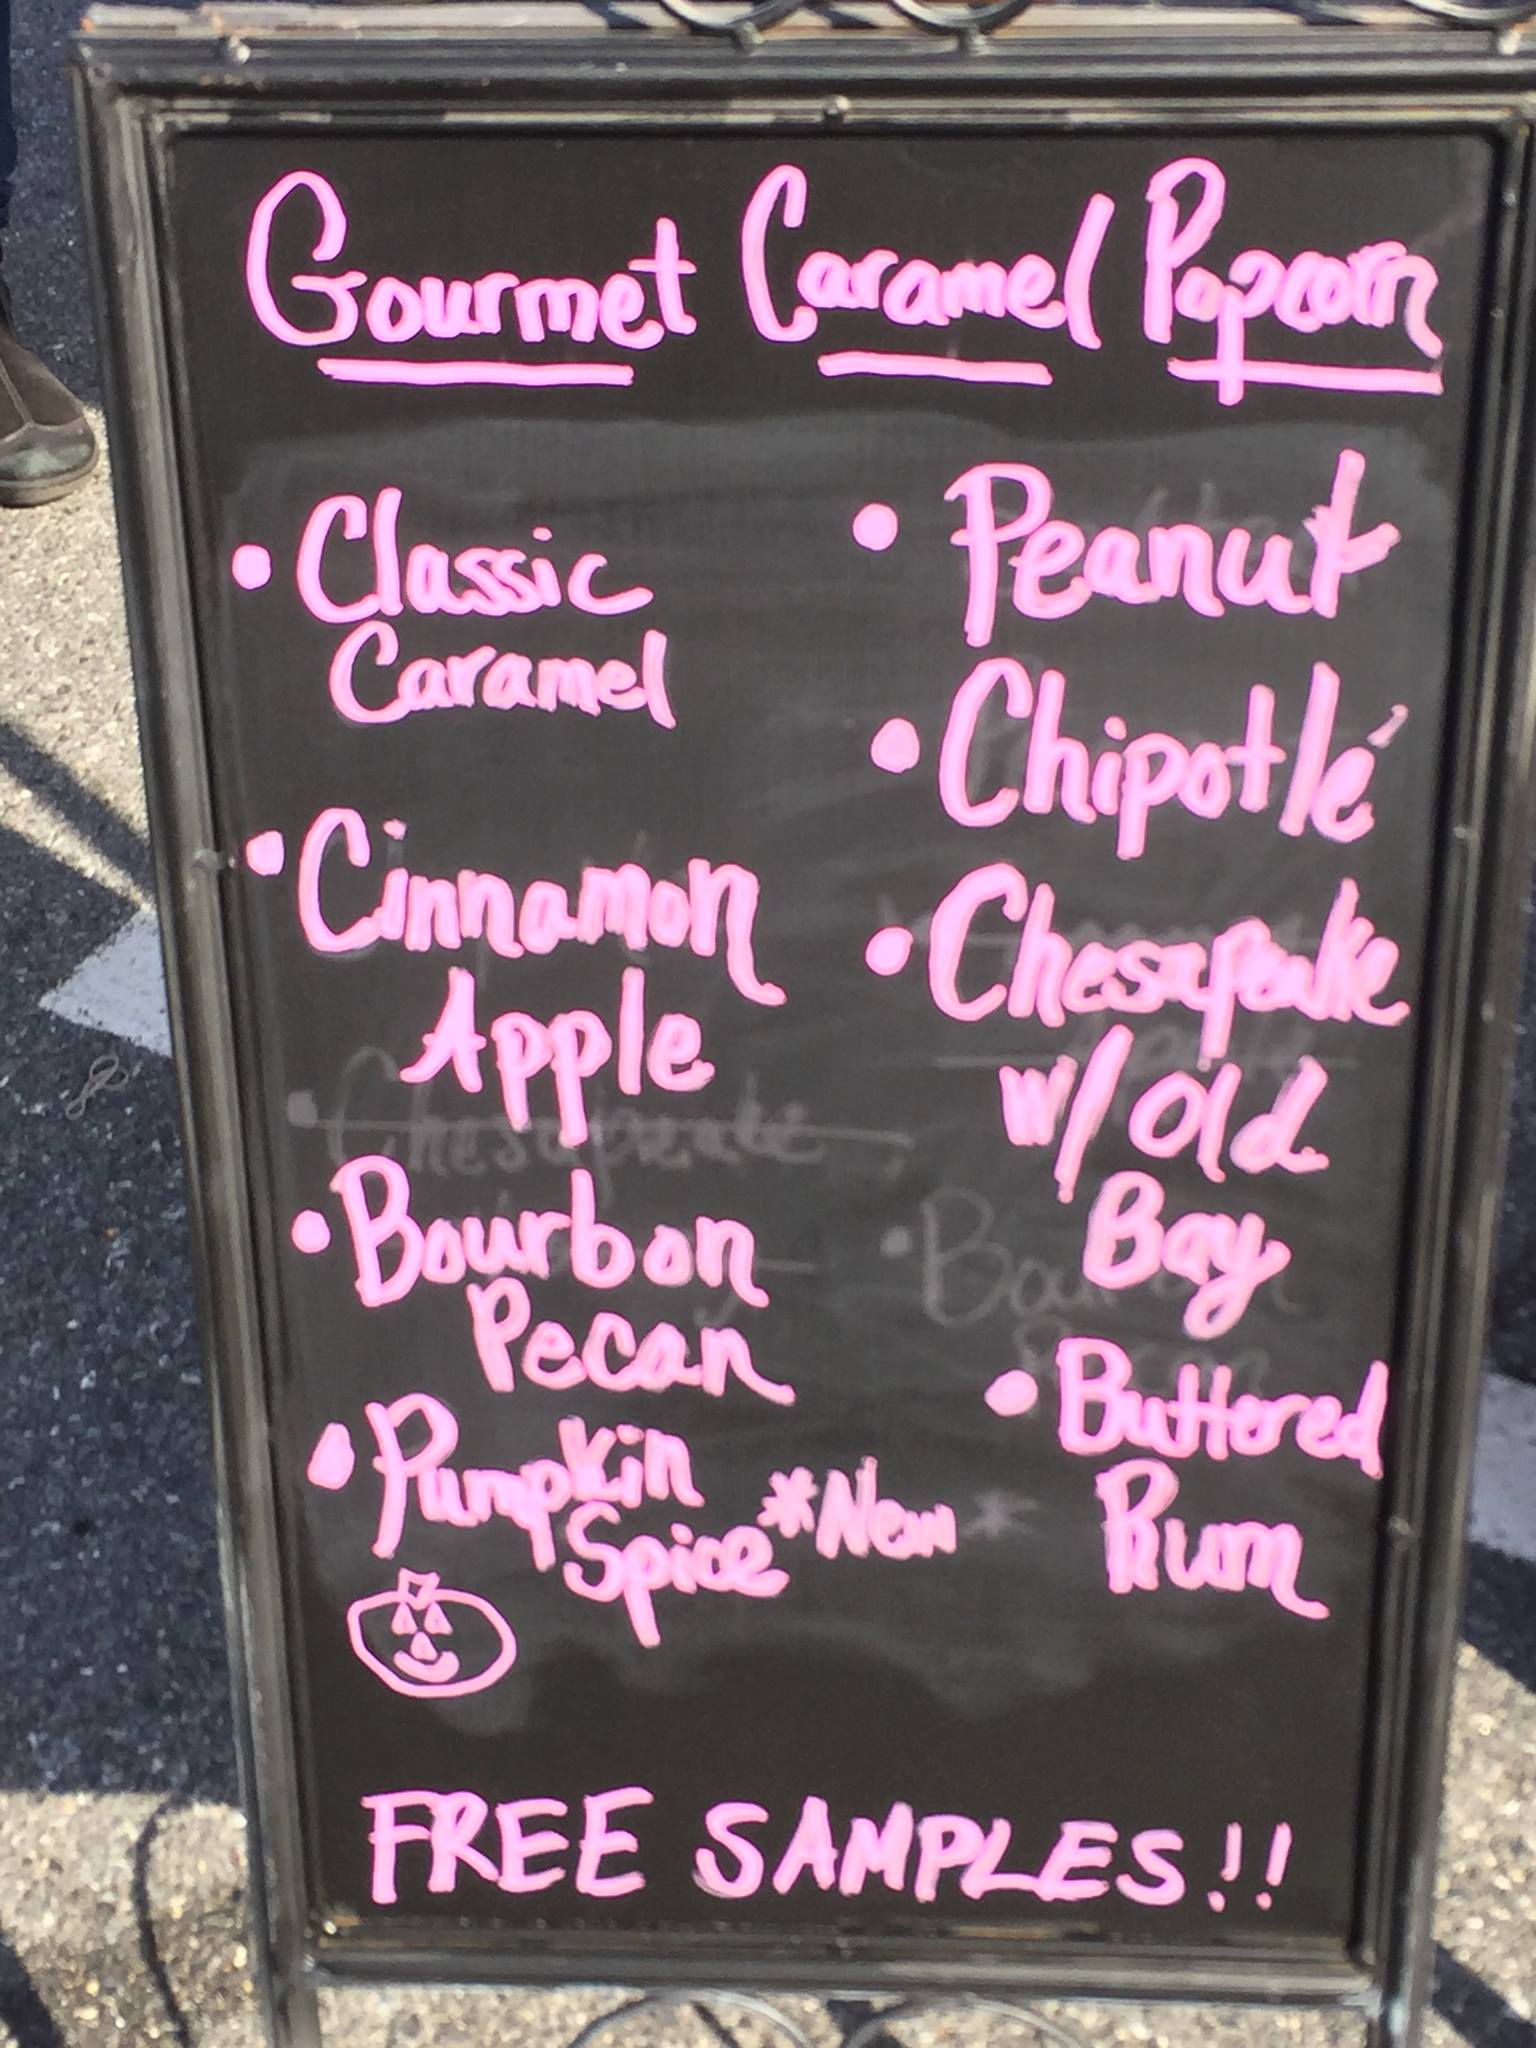 Gourmet Caramel Popcorn
• Classic
Caramel
• Cinnamon
Apple
• Bourbon
Pecan
• Pumpkin
Spice *New*
• Peanut
• Chipotlé
• Chesapeake
w/ Old
Bay
• Buttered
Rum
FREE SAMPLES!!